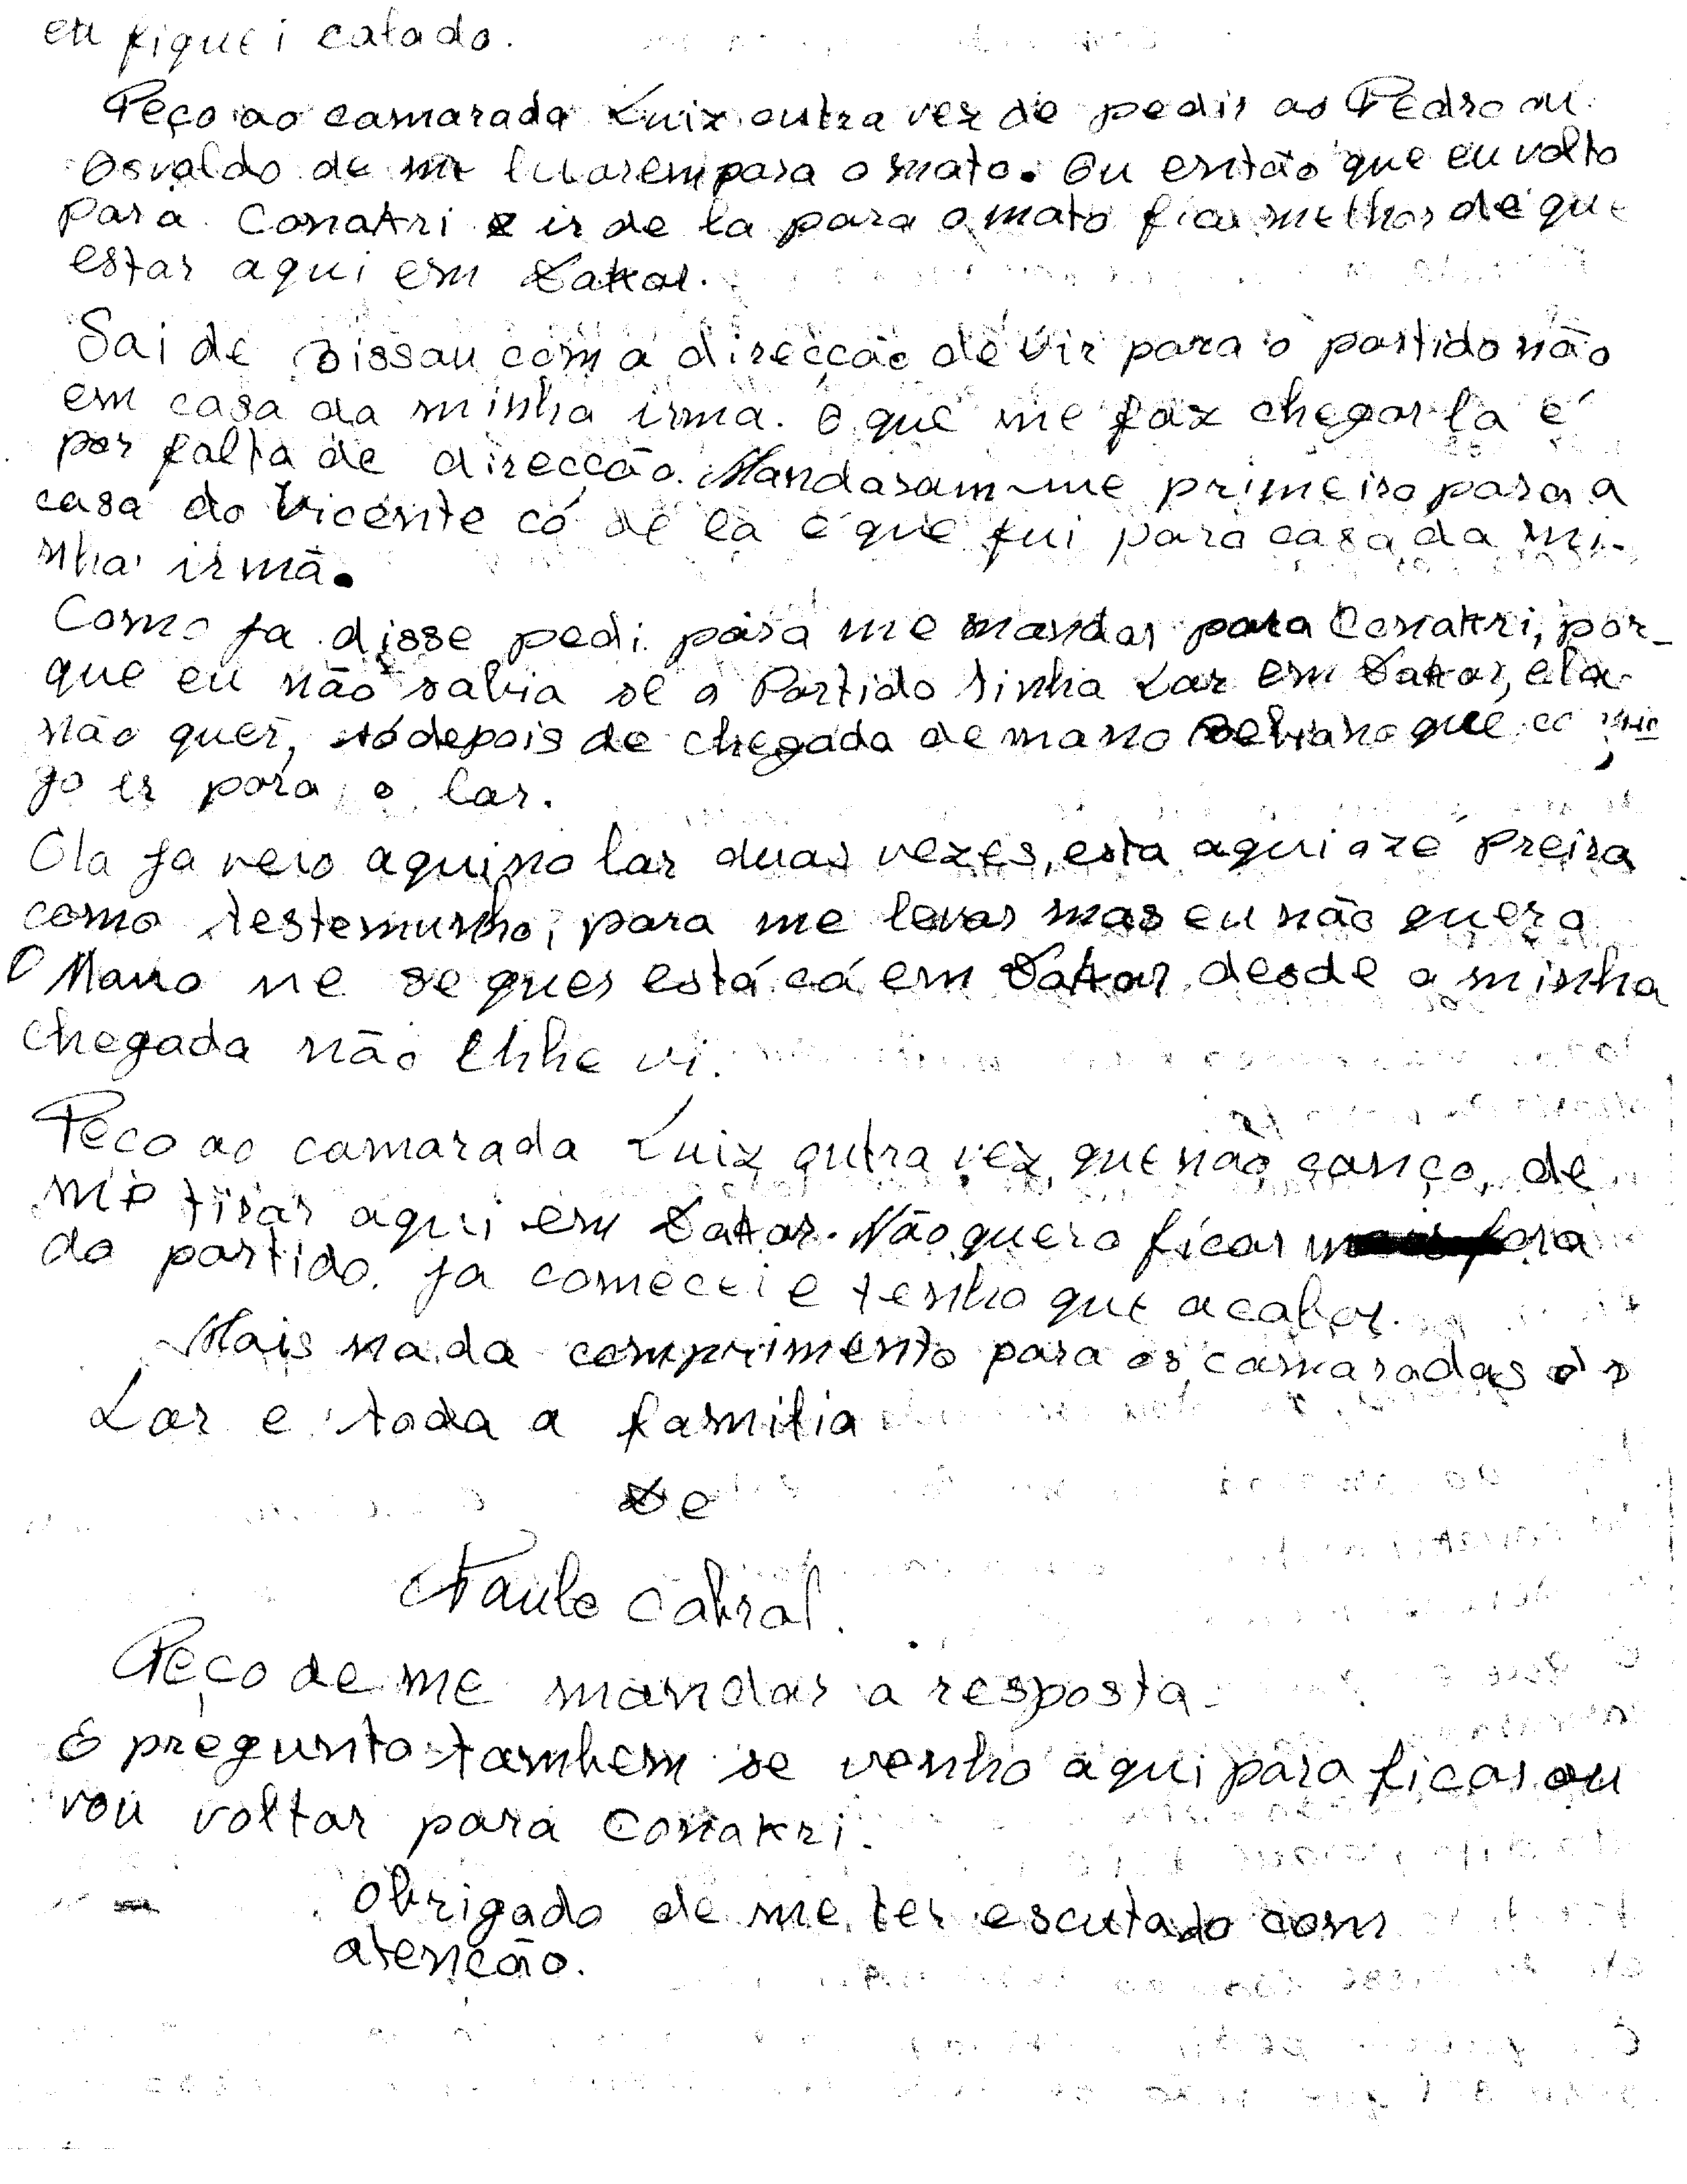 eu fiquei calado.
Peço ao camarada Luiz outra vez de pedir ao Pedro ou
Osvaldo de me levarem para o mato. Ou então que eu volto
para Conakri e ir de la para o mato fica melhor de que
estar aqui em Dakar.
Sai de Bissau com a direcção de vir para o partido não
em casa da minha irma. O que me faz chegar la é
por falta de direcção. Mandaram-me primeiro para a
casa do Vicente có de la é que fui para casa da mi-
nha irmã.
Como ja disse pedi para me mandar para Conakri, por-
que eu não sabia se o Partido tinha Lar em Dakar, ela
não quer, só depois de chegada de mano que
go ir para o lar.
Ela ja veio aqui no lar duas vezes, esta aqui o zé Preira
como testemunho, para me levar mas eu não quero
O Mano ne se quer está cá em Dakar, desde a minha
chegada não lhe vi.
Peco ao camarada Luiz outra vez, que não canço, de
me tirar aqui em Dakar. Não quero ficar fora
do partido. ja comecei e tenho que acabar.
Mais nada comprimento para os camaradas do
Lar e toda a familia
De
Paulo Cabral.
Peço de me mandar a resposta.
E pregunto tambem se venho aqui para ficar ou
vou voltar para Conakri.
Obrigado de me ter escutado com
atencão.